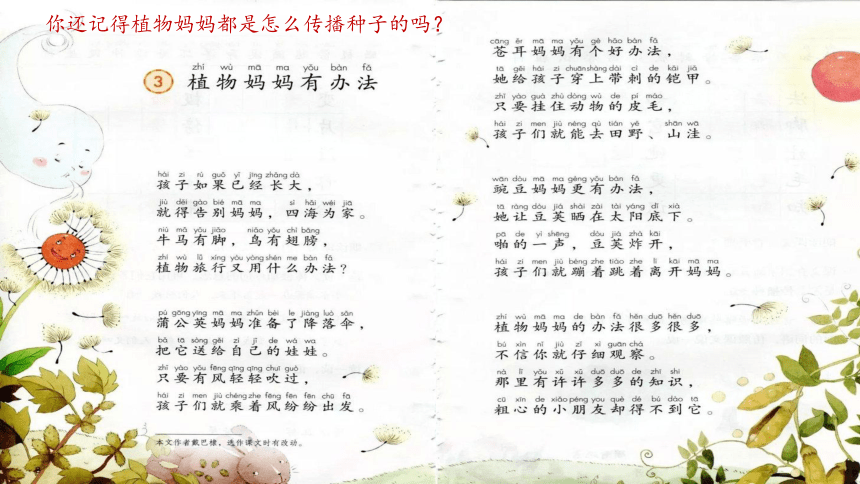 你还记得植物妈妈都是怎么传播种子的吗？
zhí wù mā ma yǒu bàn fǎ
3 植物妈妈有办法
hái zi rú guǒ yǐ jīng zhǎng dà
孩子如果已经长大，
jiù děi gào bié mā ma sì hǎi wéi jiā
就得告别妈妈，四海为家。
niú mǎ yǒu jiǎo niǎo yǒu chì bǎng
牛马有脚，鸟有翅膀，
zhí wù lǚ xíng yòu yòng shén me bàn fǎ
植物旅行又用什么办法？
pú gōng yīng mā ma zhǔn bèi le jiàng luò sǎn
蒲公英妈妈准备了降落伞，
bǎ tā sòng gěi zì jǐ de wá wa
把它送给自己的娃娃。
zhǐ yào yǒu fēng qīng qīng chuī guò
只要有风轻轻吹过，
hái zi men jiù chéng zhe fēng fēn fēn chū fā
孩子们就乘着风纷纷出发。
本文作者戴巴棣，选作课文时有改动。
cāng ěr mā ma yǒu gè hǎo bàn fǎ
苍耳妈妈有个好办法，
tā gěi hái zi chuān shàng dài cì de kǎi jiǎ
她给孩子穿上带刺的铠甲。
zhǐ yào guà zhù dòng wù de pí máo
只要挂住动物的皮毛，
hái zi men jiù néng qù tián yě shān wā
孩子们就能去田野、山洼。
wān dòu mā ma gèng yǒu bàn fǎ
豌豆妈妈更有办法，
tā ràng dòu jiá shài zài tài yáng dǐ xià
她让豆荚晒在太阳底下。
pā de yì shēng dòu jiá zhà kāi
啪的一声，豆荚炸开，
hái zi men jiù bèng zhe tiào zhe lí kāi mā ma
孩子们就蹦着跳着离开妈妈。
zhí wù mā ma de bàn fǎ hěn duō hěn duō
植物妈妈的办法很多很多，
bú xìn nǐ jiù zǐ xì guān chá
不信你就仔细观察。
nà lǐ yǒu xǔ xǔ duō duō de zhī shi
那里有许许多多的知识，
cū xīn de xiǎo péng yǒu què dé bú dào tā
粗心的小朋友却得不到它。